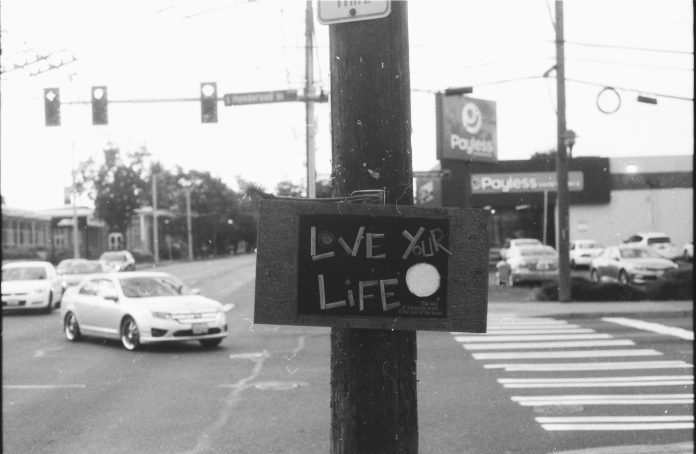 S Henderson St
Payless
Payless
LOVE YOUR
LiFE